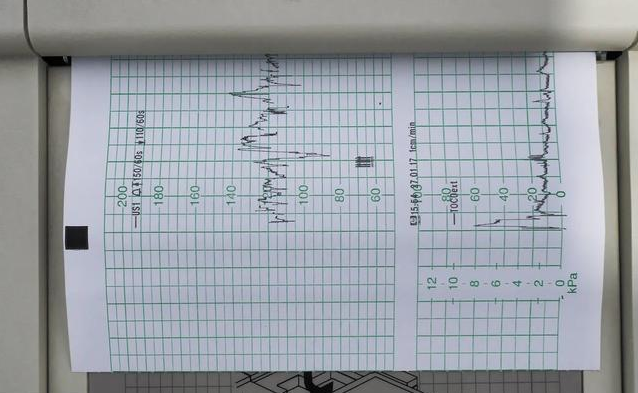 200 180 160 140 120 100 80 60
US1 150/60s 110/60s
15:54 07.01.17 1cm/min
TOCOext
100 80 60 40 20 0
12 10 8 6 4 2 0
kPa